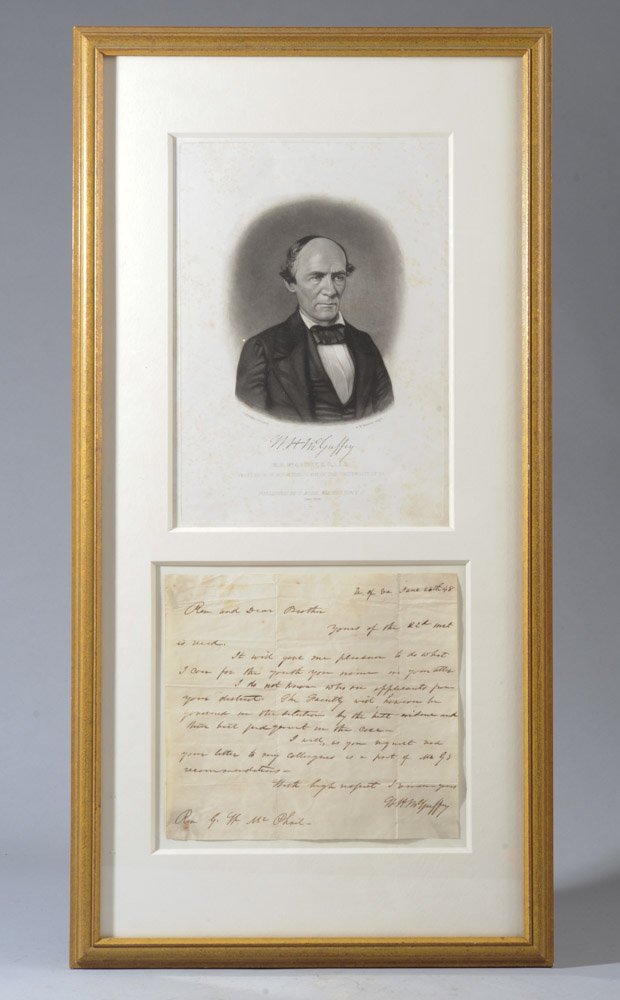 W. H. McGuffey
U. of Va June 26th 48
Rev and Dear Brother
Yours of the 22d inst
is recd.
It will give me pleasure to do what
I can for the youth you name in your letter
I do not know who are applicants from
your district. The Faculty will however be
governed in the selection by the best evidence and
their best judgment in the case—
I will, as you request read
your letter to my colleagues as a part of Mr G's
recommendations—
With high respect I remain yours
W H McGuffey
Rev G. W Mc Phail—